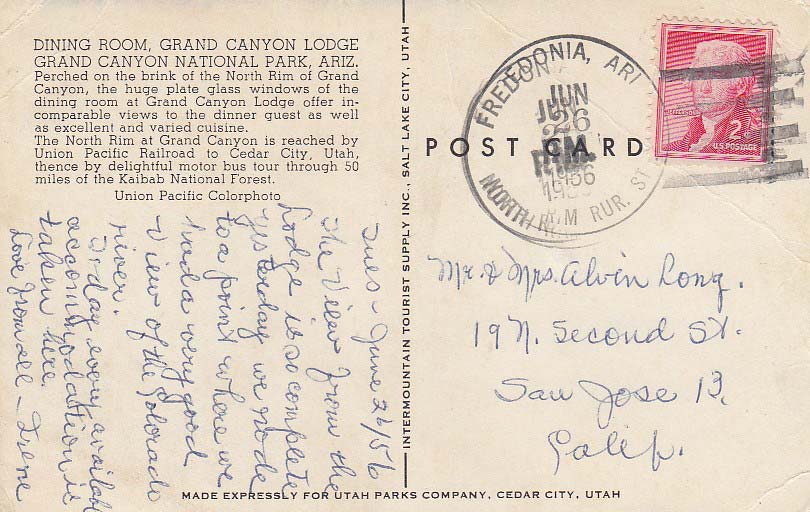 DINING ROOM, GRAND CANYON LODGE
GRAND CANYON NATIONAL PARK, ARIZ.
Perched on the brink of the North Rim of Grand
Canyon, the huge plate glass windows of the
dining room at Grand Canyon Lodge offer in-
comparable views to the dinner guest as well
as excellent and varied cuisine.
The North Rim at Grand Canyon is reached by
Union Pacific Railroad to Cedar City, Utah,
thence by delightful motor bus tour through 50
miles of the Kaibab National Forest.
Union Pacific Colorphoto
Tues - June 26/56
The View from the
Lodge is so complete
yesterday we rode
to a point where we
had a very good
view of the Colorado
river.
room available
accommodation is
taken here.
Love from all - Irene
INTERMOUNTAIN TOURIST SUPPLY INC., SALT LAKE CITY, UTAH
POST CARD
FREDONIA, ARI
JUN
26
P.M.
1956
NORTH RIM RUR. ST
2¢
U.S. POSTAGE
Mr. & Mrs. Alvin Long.
19 N. Second St.
San Jose 13,
Calif.
MADE EXPRESSLY FOR UTAH PARKS COMPANY, CEDAR CITY, UTAH